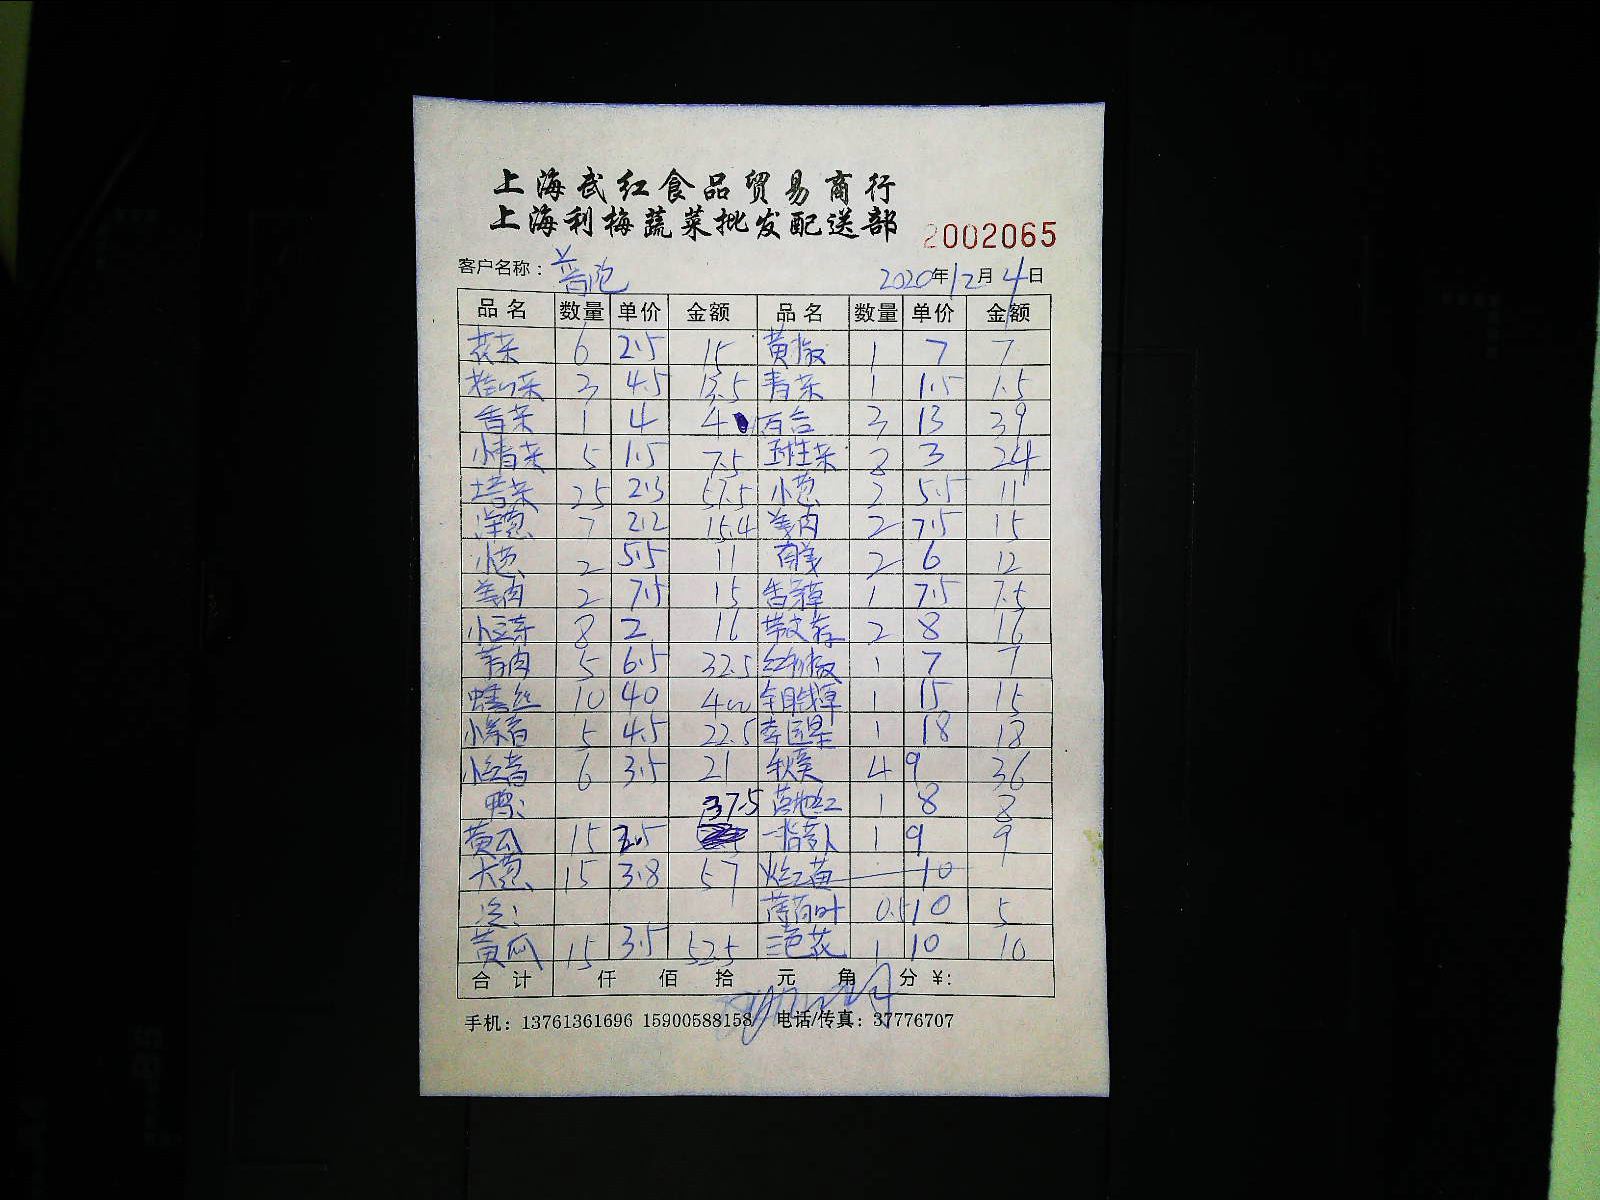 上海武红食品贸易商行
上海利梅蔬菜批发配送部 2002065
客户名称： 2020年12月4日
品名 数量 单价 金额 品名 数量 单价 金额
花菜 6 2.5 15 黄椒 1 7 7
3 4.5 13.5 青菜 1 1.5 1.5
香菜 1 4 4 百合 3 13 39
小青菜 5 1.5 7.5 生菜 8 3 24
塔菜 25 2.3 57.5 小葱 2 5.5 11
洋葱 7 2.2 15.4 姜肉 2 7.5 15
小葱 2 5.5 11 南姜 2 6 12
姜肉 2 7.5 15 香茅草 1 7.5 7.5
小豆芽 8 2 16 2 8 16
青肉 5 6.5 32.5 红尖椒 1 7 7
丝 10 40 400 金钱草 1 15 15
5 4.5 22.5 幸运星 1 18 18
6 3.5 21 秋葵 4 9 36
鸭： 1 8 8
黄瓜 15 2.5 37.5 1 9 9
大葱 15 3.8 57 红苗 10
冷： 薄荷叶 0.5 10 5
黄瓜 15 3.5 52.5 三色花 1 10 10
合计 仟 佰 拾 元 角 分 ¥:
手机：13761361696 15900588158 电话/传真：37776707